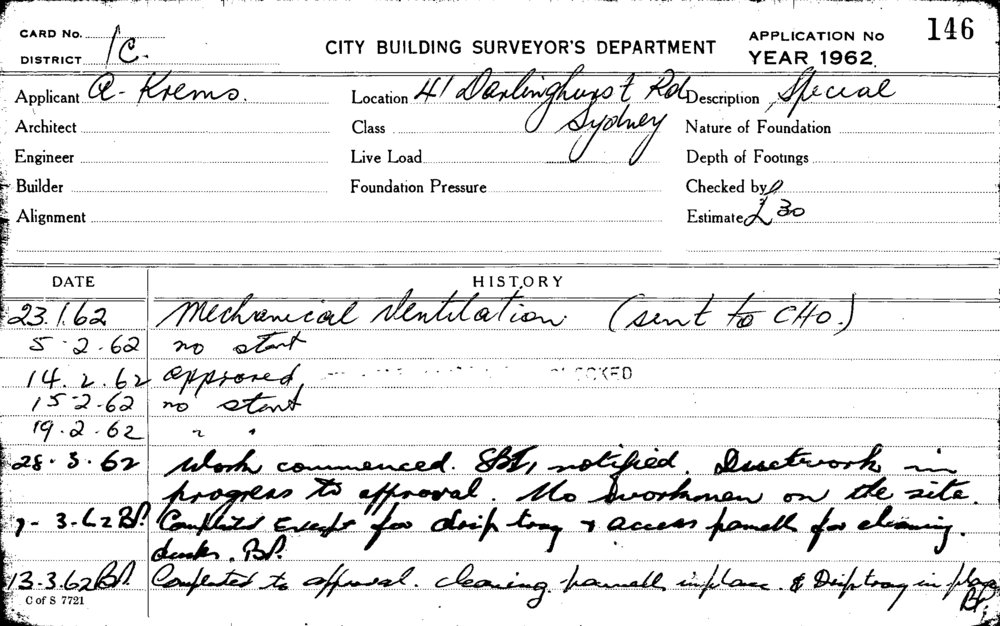 CARD No. 1C.
DISTRICT
CITY BUILDING SURVEYOR'S DEPARTMENT
APPLICATION No 146
YEAR 1962.
Applicant A. Krems. Location 41 Darlinghurst Rd Description Special
Architect Class Sydney Nature of Foundation
Engineer Live Load Depth of Footings
Builder Foundation Pressure Checked by
Alignment Estimate £30
DATE HISTORY
23.1.62 Mechanical Ventilation. (sent to CHO.)
5-2.62 no start
14.2.62 approved,
15-2-62 no start
19.2.62 " "
28.3.62 Work commenced. notified. Ductwork in
progress to approval. No workmen on the site.
3-62 BP. Completed Except for drip tray & access panells for cleaning
ducks. BP.
13-3.62 BP. Completed to approval. cleaning panells in place. & Drip tray in place
BP.
C of S 7721